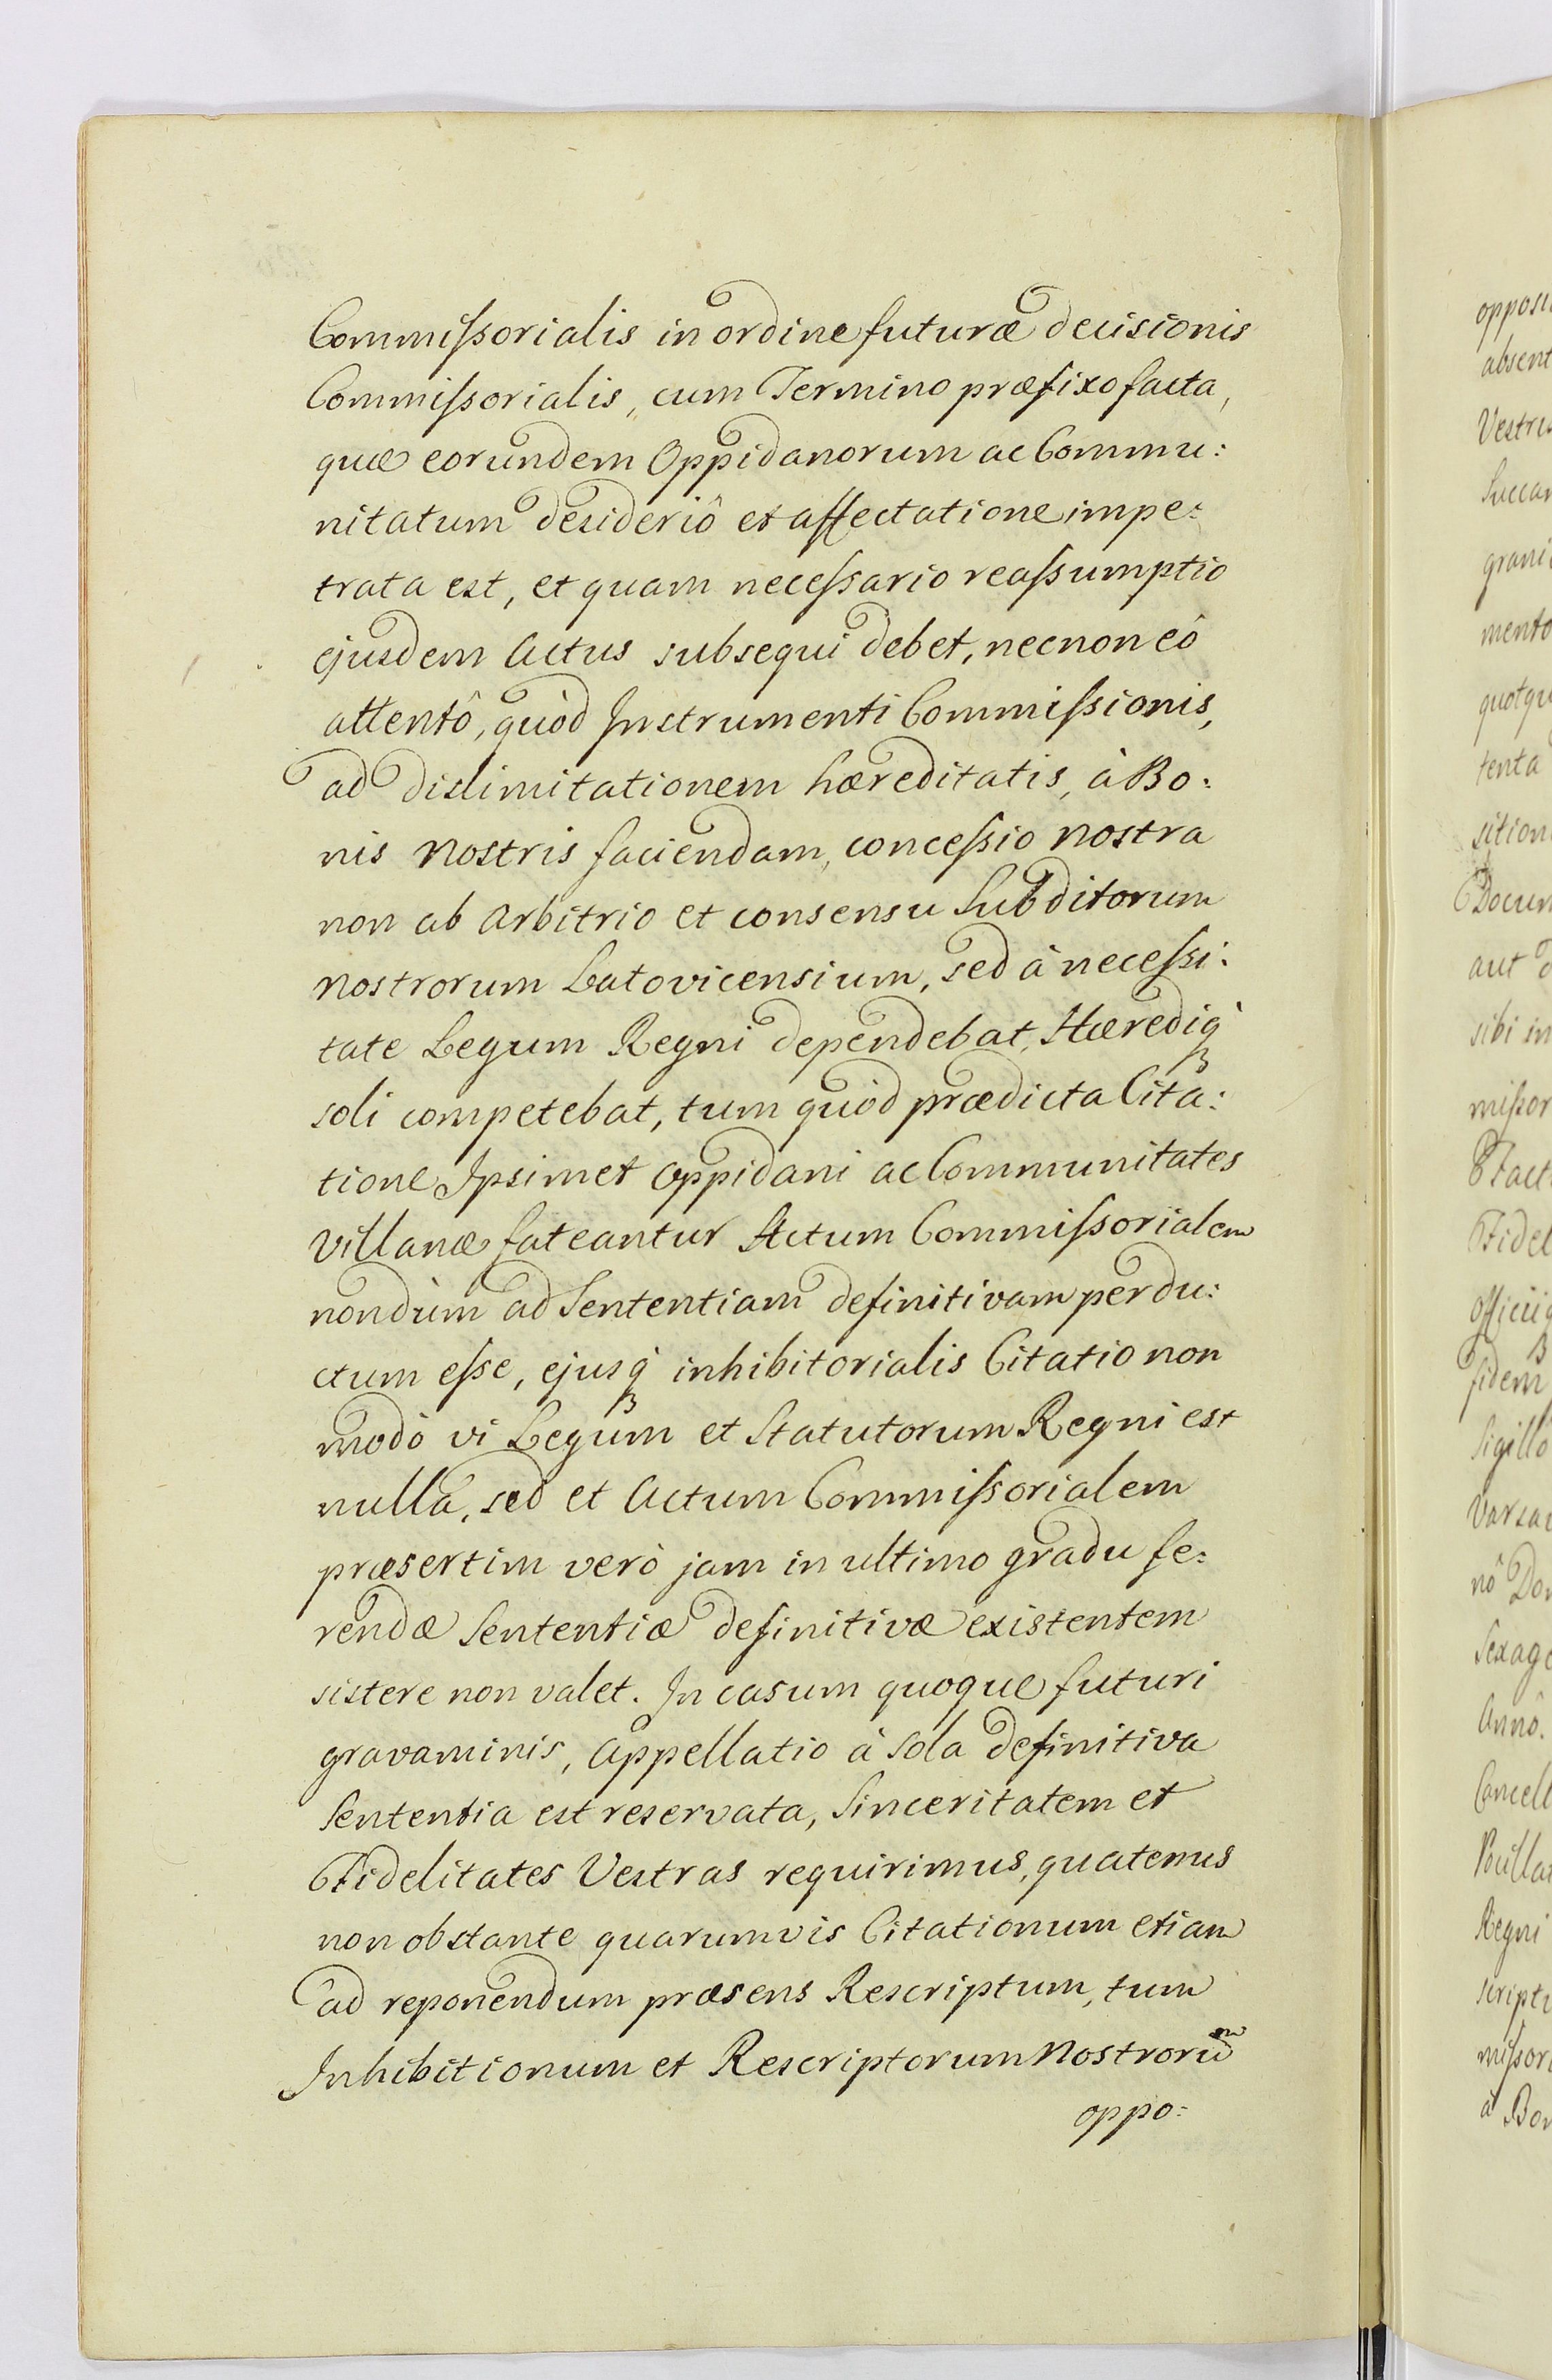 Commiſsorialis in ordine futuræ decisionis
Commiſsorialis, cum Termino præfixo facta,
quæ eorundem Oppidanorum ac Commu:
nitatum desideriô et affectatione impe:
trata est, et quam neceſsario reaſsumptio
ejusdem Actus subsequi debet, necnon eô
attentô, quòd Instrumenti Commiſsionis,
ad dislimitationem hæreditatis, à Bo:
nis Nostris faciendam, conceſsio Nostra
non ab Arbitrio et consensu Subditorum
Nostrorum Latovicensium, sed à neceſsi:
tate Legum Regni dependebat, Hærediq̃
soli competebat, tum quòd prædicta Cita:
tione Ipsimet Oppidani ac Communitates
Villanæ fateantur Actum Commiſsorialem
nondùm ad Sententiam definitivam perdu:
ctum eſse, ejusq̃ inhibitorialis Citatio non
modò vi Legum et Statutorum Regni est
nulla, sed et Actum Commiſsorialem
præsertim verò jam in ultimo gradu fe:
rendæ Sententiæ definitivæ existentem
sistere non valet. In casum quoque futuri
gravaminis, Appellatio à sola definitiva
Sententia est reservata, Sinceritatem et
Fidelitates Vestras requirimus, quatenus
non obstante quarumvis Citationum etiam
ad reponendum præsens Rescriptum, tum
Inhibitionum et Rescriptorum Nostrorũm
oppo:
absent
mento
tenta
aut
sibi in
Regni
à